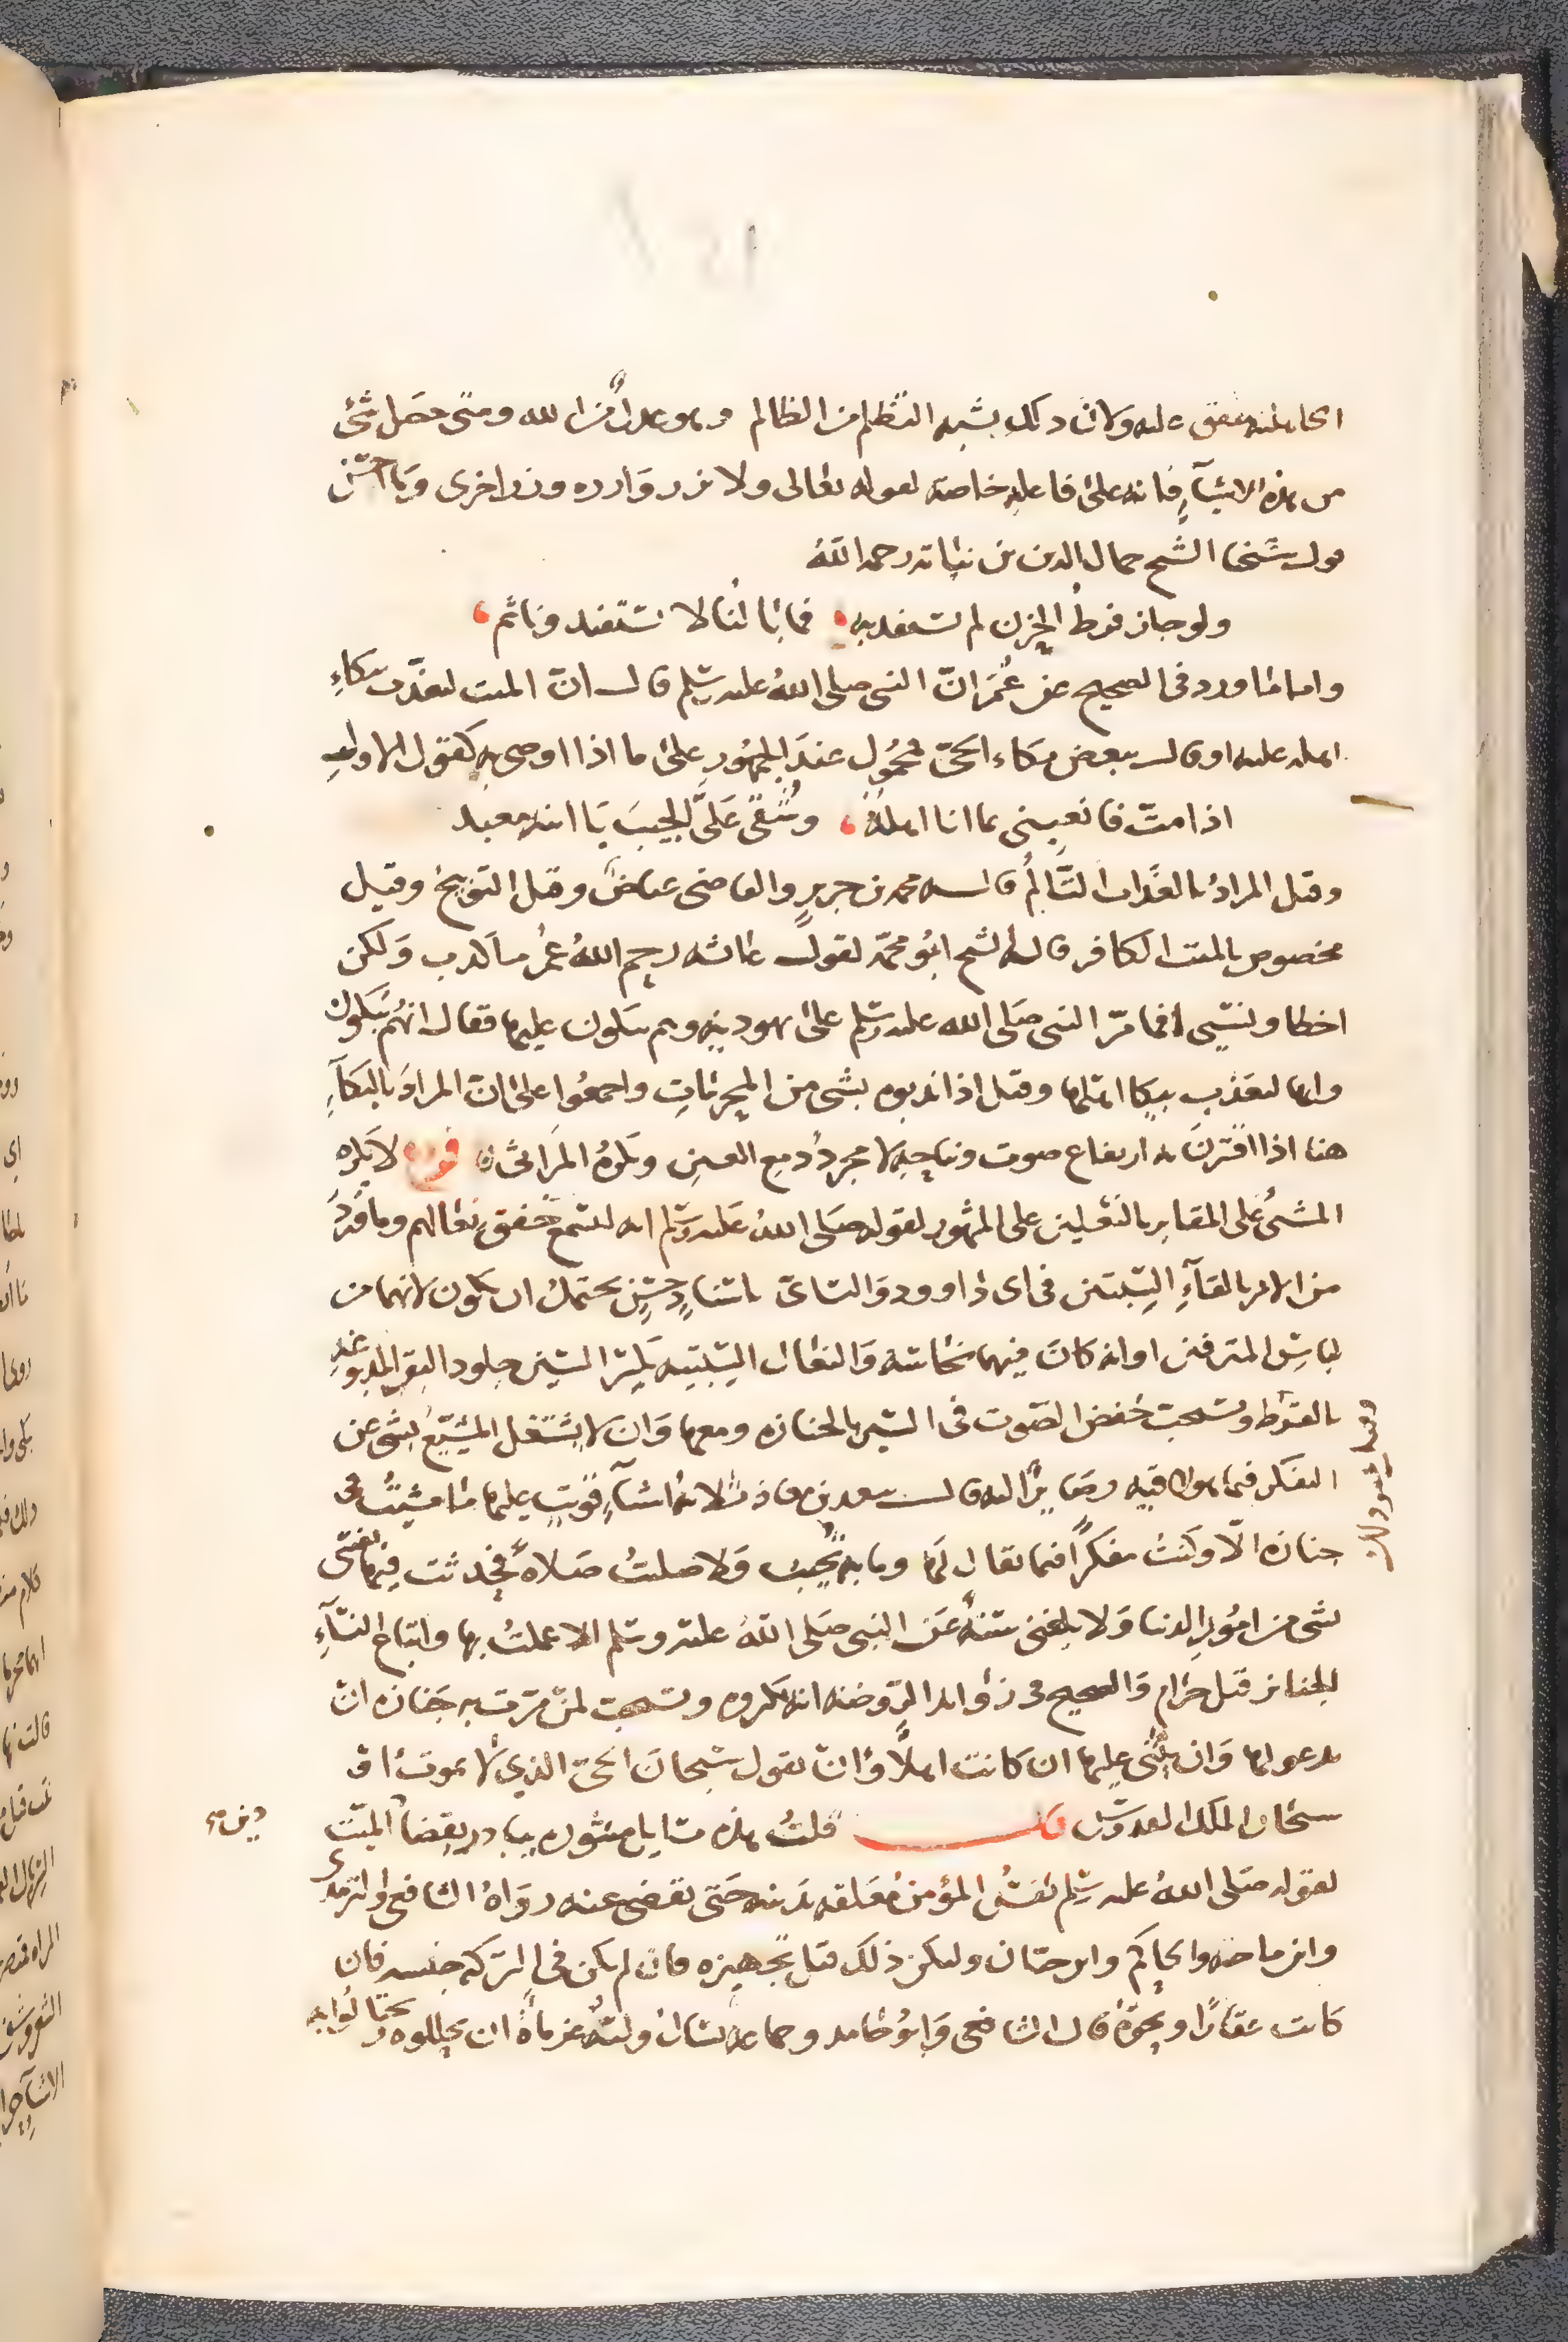 الجاهلية متفق عليه ولان ذلك يشبه التظلم من الظالم وهو عدل من الله ومتى حصل شئ
من هذه الاشيآء فانه على فاعله خاصة لقوله تعالى ولا تزر وازرة وزر اخرى وما احسن
قول شيخنا الشيخ جمال الدين بن نباتة رحمه الله
ولو جاز فرط الحزن لم تستفد به فما بالنا لا نستفيد ونأثم
واما ما ورد فى الصحيح عن عُمَر انّ النبى صلى الله عليه وسلم قال انّ الميت ليعذّب ببكاءِ
اهله عليه او قال ببعض بكاء الحىّ محمُول عند الجمهُور على ما اذا اوصى به كقول الاول
اذا مت فانعينى بما انا اهله وشُقّى عَلىّ الجيبَ يَا ابنة معبد
وقيل المرادُ بالعذَاب التَّألُّم قاله محمد بن جرير والقاضى عياض وقيل التوبيخ وقيل
مخصوص بالميت الكافر قاله الشيخ ابُو محمّد لقول عائشه رحم اللهُ عُمرَ ما كذب وَلكن
اخطا او نسي انما مرّ النبى صَلى الله عليه وسلم على يهودية وهم يبكون عليها فقال انهُم يَبكون
وانها لتعَذب ببكا اهلها وقيل اذا ندبوه بشى من المحرمَاتِ واجمعُوا على انّ المراد بالبكآءِ
هنا اذا اقترنَ به ارتفاع صوت ونياحة لا مجردُ دمع العين ويكرهُ المرَاثى لا يكره
المشىُ على المقابر بالنعلين على المشهور لقوله صَلى اللهُ عَليه وسلم انه ليسمع خفق نعالهم وما وَرَدَ
من الامر بالقآءِ السِبتيتين فى ابى داوود وَالنسائى باسنادٍ حسَنٍ يحتمل ان يكون لانهما من
لباسِ المترفين او انه كانَ فيهما نجاسَة وَالنعال السِبتيه بكسر السين جلود البقر المدبوغه
بالقرظ ويستحب خفض الصَوت فى السَير بالجنازه ومعها وَان لا يشتغل المشيّعُ بشئ عن
التفكر فيما هو لاقيه وصَايرٌ اليه قال سعد بن معاذ ثلاثة اشيآءٍ قويت عليها ما مشيتُ فى
جنازه الّا وكنتُ مفكراً فيما يقال لهَا وما به تجُيب وَلا صليتُ صَلاةً فحدثت فيها نفسى
بشى من امُور الدنيا وَلا بلغنى سُنةٌ عَن النبى صَلى اللهُ عليه وسلم الا عملتُ بها واتباع النسَآءِ
الجنائز قيل حَرام وَالصحيح فى زوائد الرّوضه انه مكروه ويستحب لمن مرّت به جَنازه انّ
يدعو لها وَان يُثنى عليها ان كانت اهلاً وَان يقول سُبحانَ الحى الذي لا يموت او
سبحان الملك القدوس قلتُ هذه مسَايل منثُوره يبادر بقضآء الميّت
دين م
لقوله صَلى اللهُ عليه وسلم نفسُ المؤمن مُعَلقه بدَينه حَتى يقضى عنه روَاهُ الشافعى والترمذى
وابن ماجَه والحاكم وابن حبّان وليكن ذلك قبل تجهيزه فان لم يكن فى التركه جنسه فان
كانت عقاراً ونحوَهُ قال الشافعى وَابُو حَامد وجماعه يسَال وليّهُ غرماءَهُ ان يحللوه ويحتالُوا به